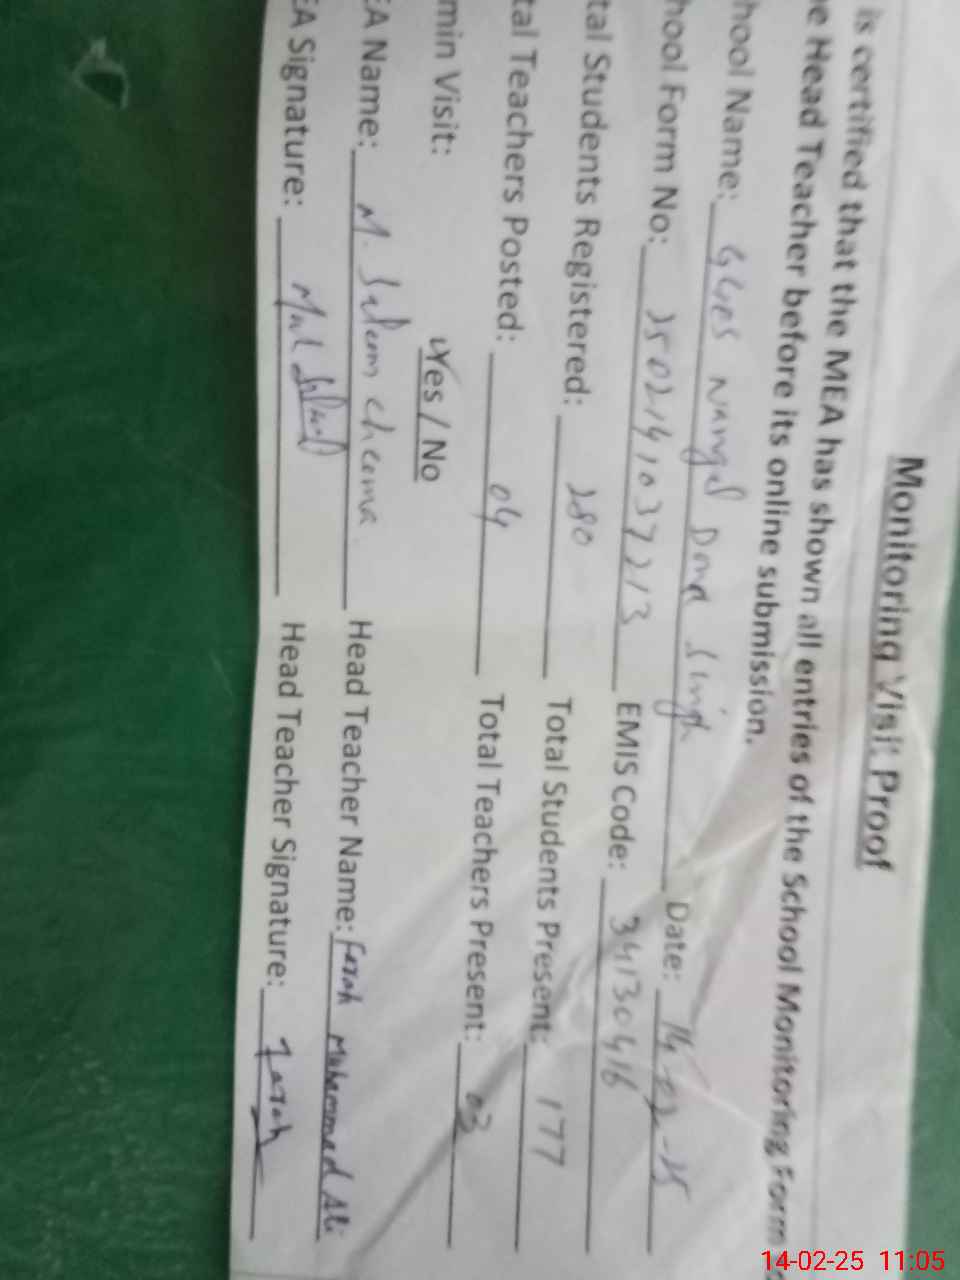 Monitoring Visit Proof
is certified that the MEA has shown all entries of the School Monitoring Form
e Head Teacher before its online submission.
hool Name: GGES Nangal Dona Singh Date: 14-02-25
hool Form No: 2502141037213 EMIS Code: 34130416
tal Students Registered: 280 Total Students Present: 177
tal Teachers Posted: 04 Total Teachers Present: 03
min Visit: Yes / No
EA Name: M. Saleem cheema Head Teacher Name: Farah Muhammad Ali
EA Signature: Head Teacher Signature: Farah
14-02-25 11:05